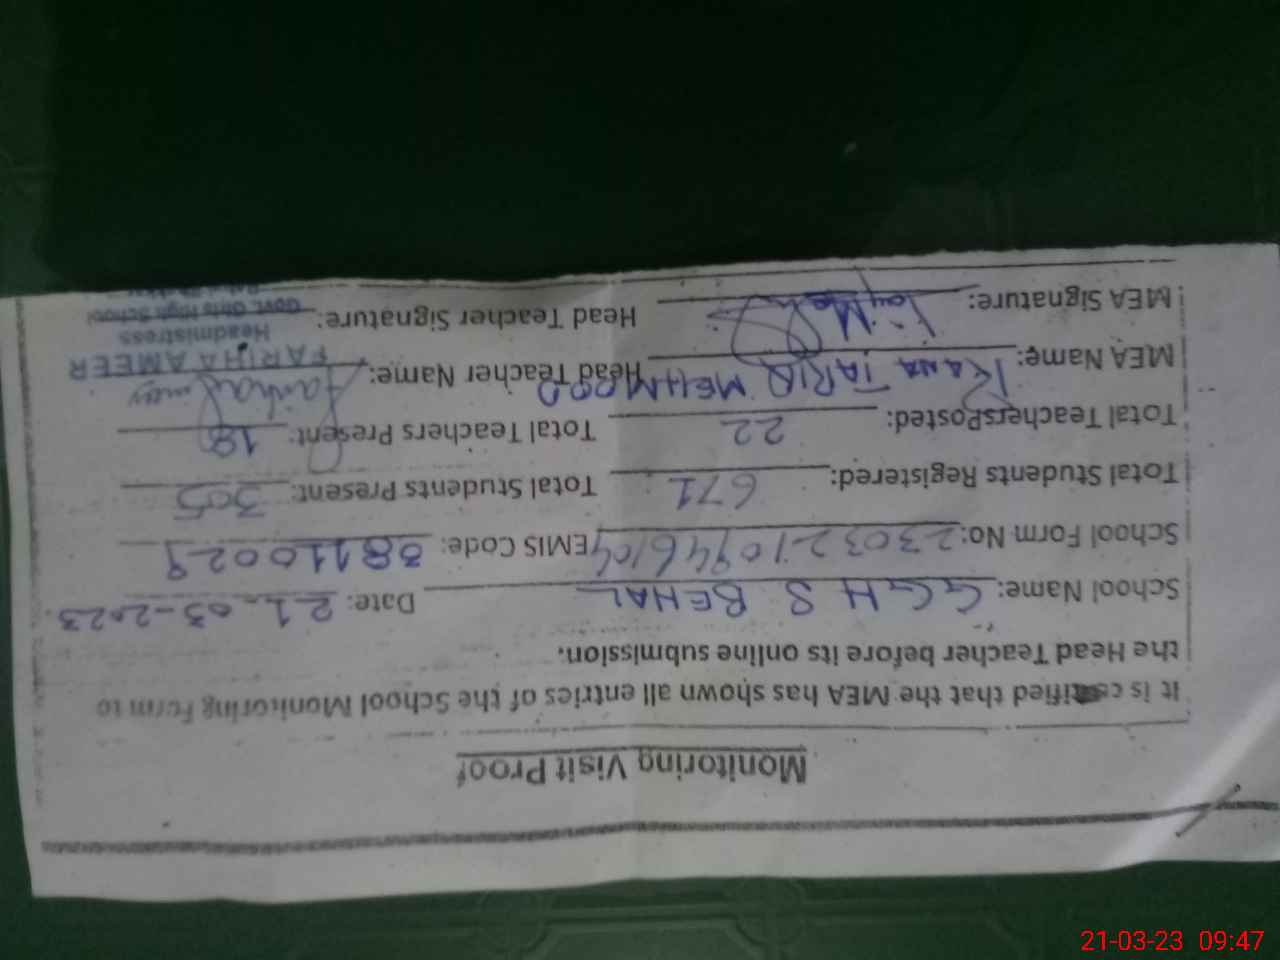 Monitoring Visit Proof
It is certified that the MEA has shown all entries of the School Monitoring Form to
the Head Teacher before its online submission.
School Name: GGHS BEHAL Date: 21-03-2023.
School Form No: 230321094610 EMIS Code: 38110029
Total Students Registered: 671 Total Students Present: 305
Total TeachersPosted: 22 Total Teachers Present: 18
MEA Name: RANA TARIQ MEHMOOD Head Teacher Name: FARIHA AMEER
Headmistress
MEA Signature: Head Teacher Signature: Govt. Girls High School
21-03-23 09:47